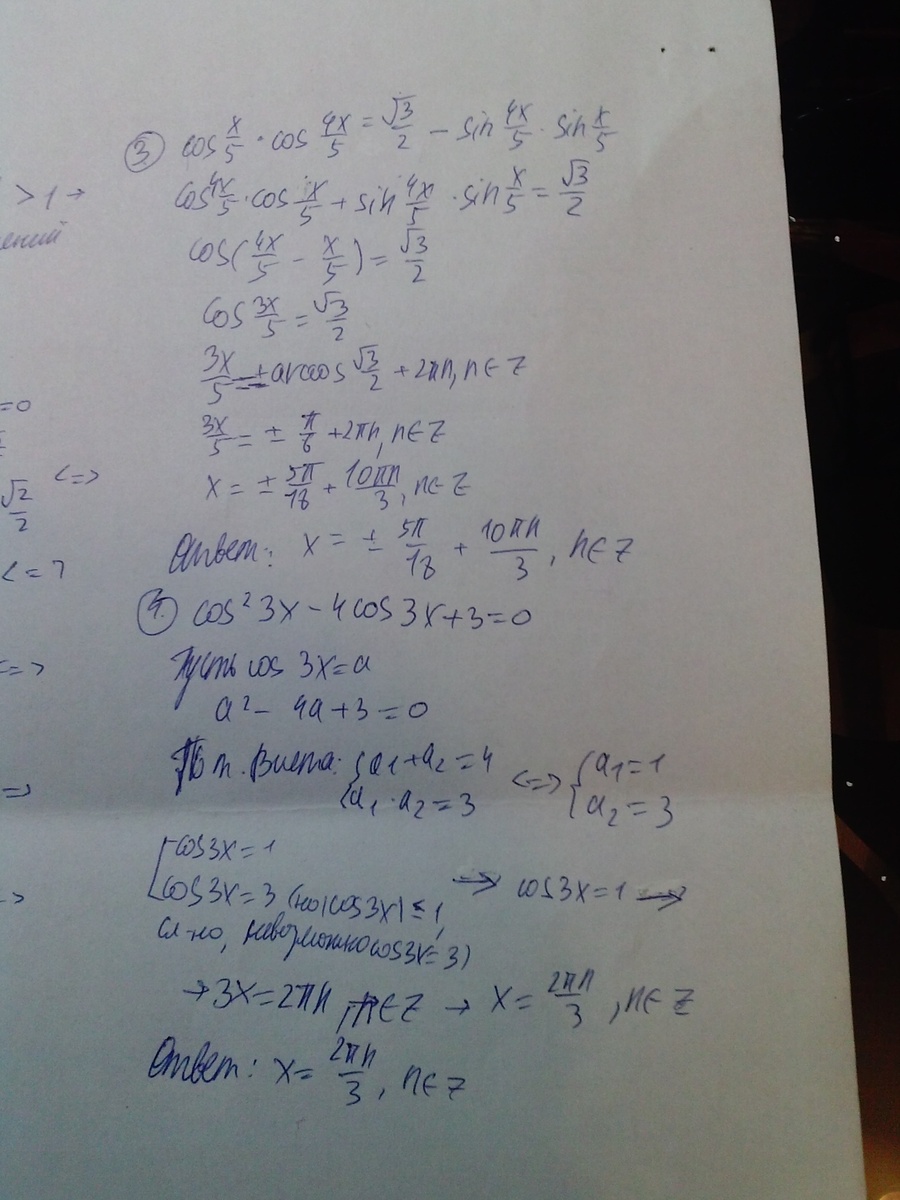 3. cos x/5 · cos 4x/5 = √3/2 − sin 4x/5 · sin x/5
cos 4x/5 · cos x/5 + sin 4x/5 · sin x/5 = √3/2
cos(4x/5 − x/5) = √3/2
cos 3x/5 = √3/2
3x/5 = ± arccos √3/2 + 2πn, n∈Z
3x/5 = ± π/6 + 2πn, n∈Z
x = ± 5π/18 + 10πn/3, n∈Z
Ответ: x = ± 5π/18 + 10πn/3, n∈Z
4. cos² 3x − 4cos 3x + 3 = 0
Пусть cos 3x = a
a² − 4a + 3 = 0
По т. Виета: { a₁ + a₂ = 4 <=> { a₁ = 1
a₁ · a₂ = 3 a₂ = 3
[ cos 3x = 1
cos 3x = 3 (но |cos 3x| ≤ 1, → cos 3x = 1 →
сл-но, невозможно cos 3x = 3)
→ 3x = 2πn, n∈Z → x = 2πn/3, n∈Z
Ответ: x = 2πn/3, n∈Z
> 1 →
ений
=0
√2/2 <=>
<=>